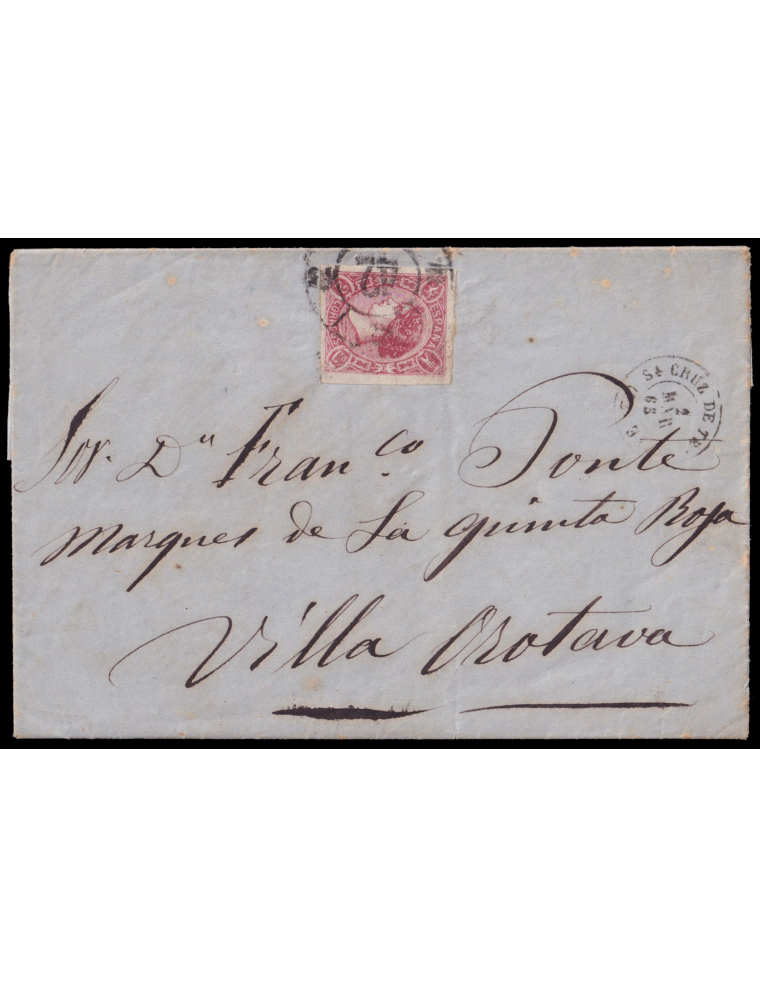 ESPAÑA
Sᵗᵃ CRUZ DE TE
2
MAR
65
Sor. Dⁿ Franᶜᵒ. Ponte
Marques de La quinta Roja
Villa Orotava